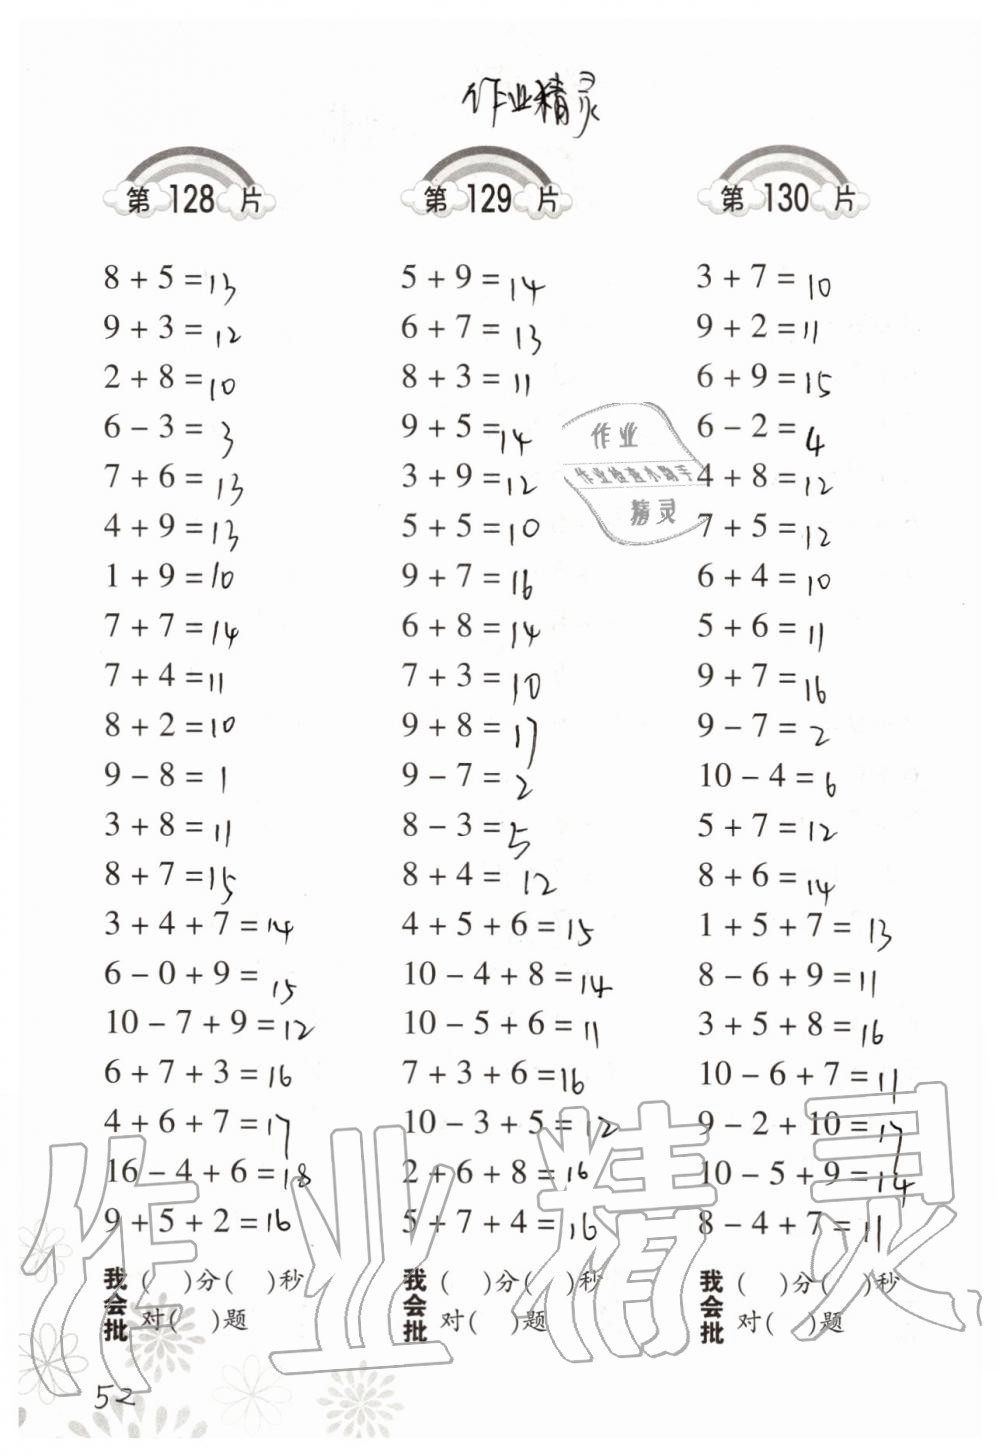 作业精灵
第 128 片
8 + 5 = 13
9 + 3 = 12
2 + 8 = 10
6 − 3 = 3
7 + 6 = 13
4 + 9 = 13
1 + 9 = 10
7 + 7 = 14
7 + 4 = 11
8 + 2 = 10
9 − 8 = 1
3 + 8 = 11
8 + 7 = 15
3 + 4 + 7 = 14
6 − 0 + 9 = 15
10 − 7 + 9 = 12
6 + 7 + 3 = 16
4 + 6 + 7 = 17
16 − 4 + 6 = 18
9 + 5 + 2 = 16
我会批
( )分( )秒
对( )题
第 129 片
5 + 9 = 14
6 + 7 = 13
8 + 3 = 11
9 + 5 = 14
3 + 9 = 12
5 + 5 = 10
9 + 7 = 16
6 + 8 = 14
7 + 3 = 10
9 + 8 = 17
9 − 7 = 2
8 − 3 = 5
8 + 4 = 12
4 + 5 + 6 = 15
10 − 4 + 8 = 14
10 − 5 + 6 = 11
7 + 3 + 6 = 16
10 − 3 + 5 = 12
2 + 6 + 8 = 16
5 + 7 + 4 = 16
我会批
( )分( )秒
对( )题
第 130 片
3 + 7 = 10
9 + 2 = 11
6 + 9 = 15
6 − 2 = 4
4 + 8 = 12
7 + 5 = 12
6 + 4 = 10
5 + 6 = 11
9 + 7 = 16
9 − 7 = 2
10 − 4 = 6
5 + 7 = 12
8 + 6 = 14
1 + 5 + 7 = 13
8 − 6 + 9 = 11
3 + 5 + 8 = 16
10 − 6 + 7 = 11
9 − 2 + 10 = 17
10 − 5 + 9 = 14
8 − 4 + 7 = 11
我会批
( )分( )秒
对( )题
作业
作业检查小助手
精灵
作业精灵
52